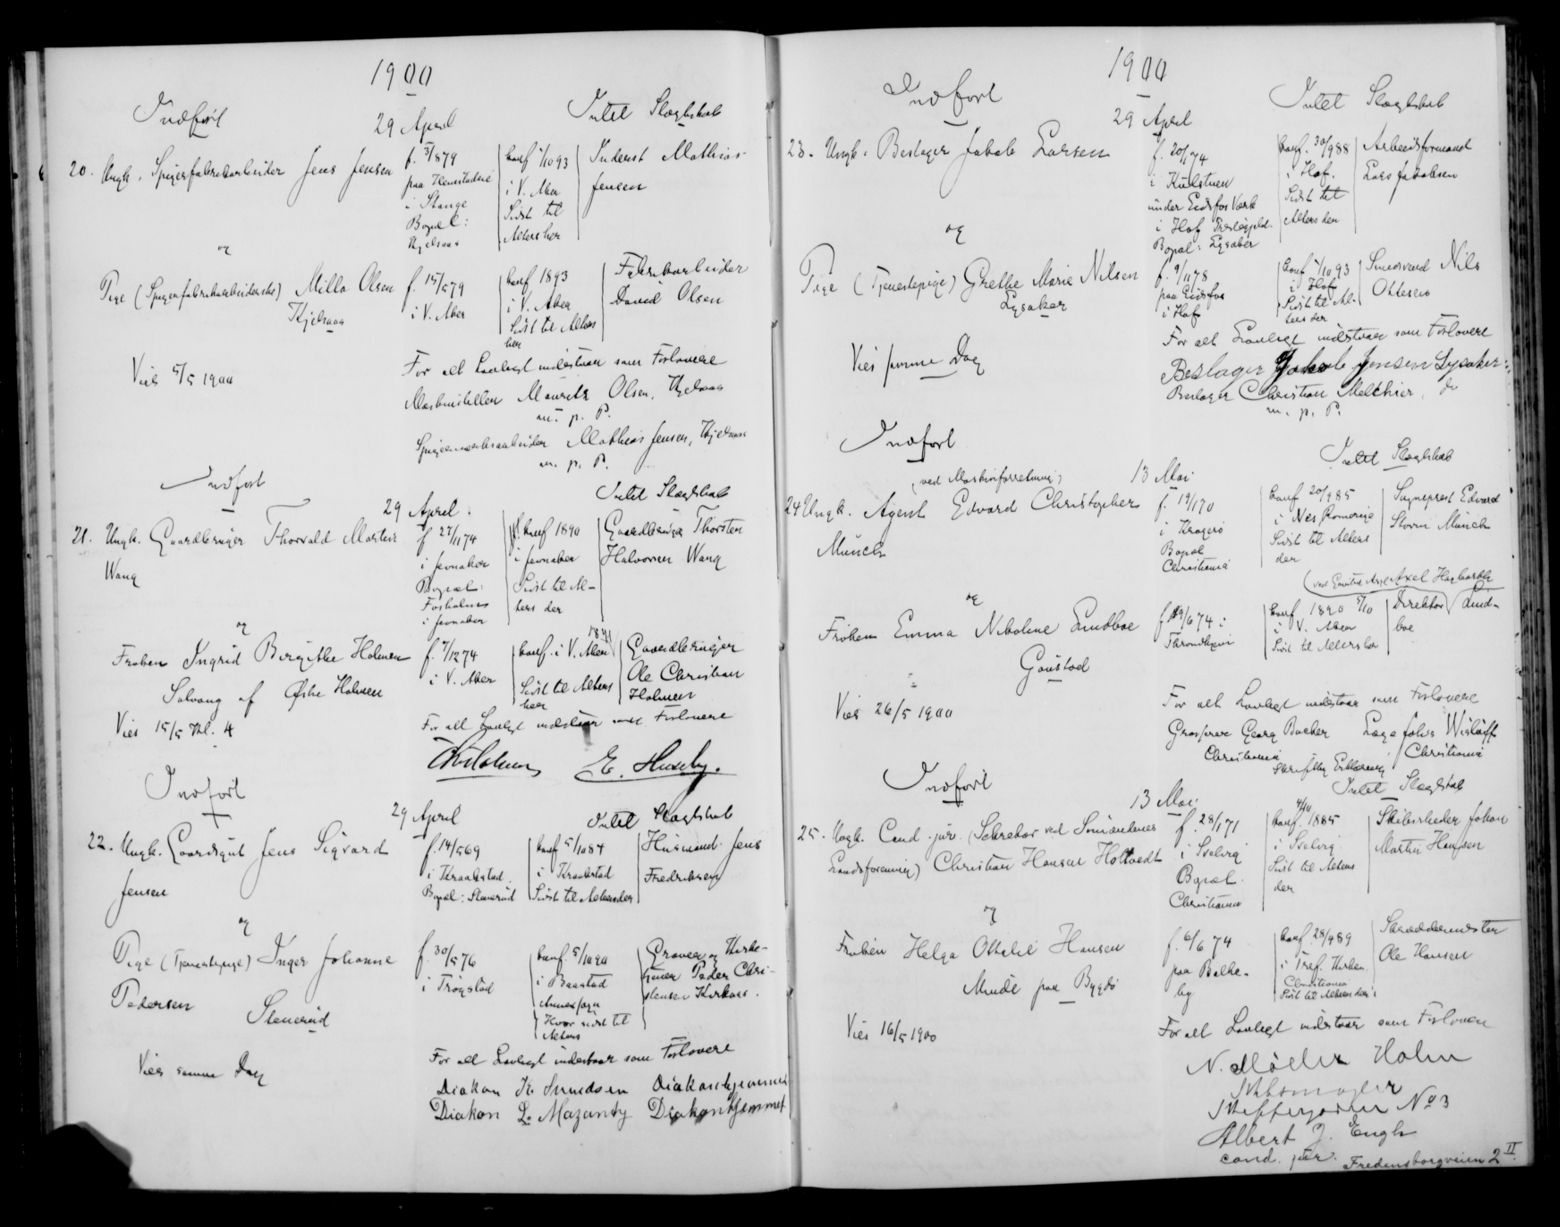 1900
Indført
29 April
Intet Slægtskab
20. Ungk. Spigerfabrikarbeider Jens Jensen
f. 3/879
paa
i Stange
Bopæl:
Kjelsaas
konf 1/1093
i V. Aker
Sidst til
Alters her
Inderst Mathias
Jensen
og
Pige (Spigerfabrikarbeiderske) Milla Olsen
Kjelsaas
f. 15/579
i V. Aker
konf 1893
i V. Aker
Sidst til Alters
her
Fabrikarbeider
David Olsen
Viet 5/5 1900
For alt Lovligt indestaar som Forlovere
Maskinstiller Mauritz Olsen, Kjelsaas
m. p. P.
Spigerverksarbeider Mathias Jensen, Kjelsaas
m. p. P.
Indført
29 April
Intet Slægtskab
21. Ungk. Gaardbruger Thorvald Martin
Wang
f 27/1174
i Jevnaker
Bopæl:
i Jevnaker
konf 1890
i Jevnaker
Sidst til Al-
ters der
Gaardbruger Thorsten
Halvorsen Wang
og
Frøken Ingrid Birgithe Holmen
Solvang af Østre Holmen
f. 7/1274
i V. Aker
konf. i V. Aker
Sidst til Alters
her
Gaardbruger
Ole Christian
Holmen
Viet 15/5 Kl. 4
For alt Lovligt indestaar som Forlovere
E. Huseby.
Indført
29 April
Intet Slægtskab
22. Ungk. Gaardsgut Jens Sigvard
Jensen
f. 14/569
i Kraakstad
Bopæl: Stenerud
konf 5/1084
i Kraakstad
Sidst til Alters der
Husmand Jens
Fredriksen
og
Pige (Tjenestepige) Inger Johanne
Pedersen
Stenerud
f. 30/576
i Trøgstad
konf. 5/1090
i Baastad
Annexsogn
Hvor sidst til
Alters
Graver og Kirke-
tjener Peder Chri-
stensen Kirkaas.
Viet samme Dag
For alt Lovligt indestaar som Forlovere
Diakon K. Svendsen Diakonhjemmet
Diakon L. Mazanty Diakonhjemmet
1900
Indført
29 April
Intet Slægtskab
23. Ungk. Beslager Jakob Larsen
f. 20/174
i Kulstuen
under Eidsfos Værk
i Hof Præstegjeld.
Bopæl: Lysaker
konf. 30/988
i Hof.
Sidst til
Alters der
Arbeidsformand
Lars Jakobsen
og
Pige (Tjenestepige) Grethe Marie Nilsen
Lysaker
f. 9/1178
paa Eidsfos
i Hof
konf 1/1093
i Hof
Sidst til Al-
ters der
Smedsvend Nils
Ottesen
Viet samme Dag
For alt Lovligt indestaar som Forlovere
Beslager Jakob Jensen Lysaker
Beslager Christian Melchior, do
m. p. P.
Indført
13 Mai
Intet Slægtskab
(ved Maskinforretning)
24 Ungk. Agent Edvard Christopher
Munch
f. 19/170
i Kragerø
Bopæl
Christiania
konf 20/985
i Nes Romerige
Sidst til Alters
der
Sogneprest Edvard
Storm Munch
og
Frøken Emma Nicoline Lindboe
Gaustad
f. 19/674 i
Throndhjem
konf 1890 5/10
i V. Aker
Sidst til Alters her
Direktør Axel Hagbarth Lind-
boe
Viet 26/5 1900
For alt Lovligt indestaar som Forlovere
Grosserer Georg Backer
Christiania
Læge Johs Wisløff
Christiania
Skriftlig Erklæring
Indført
13 Mai
Intet Slægtskab
25. Ungk. Cand. jur. (Sekretær ved Sømændenes
Landsforening) Christian Hansen Holtvedt
f. 28/171
i Svelvig
Bopæl
Christiania
konf. 4/10 1885
i Svelvig
Sidst til Alters
der
Skibsreder Johan
Martin Hansen
og
Frøken Helga Ottilie Hansen
Munde paa Bygdø
f. 6/674
paa Bakke-
by
konf. 28/989
i Tref. Kirken
Christiania
Sidst til Alters der
Skræddermester
Ole Hansen
Viet 16/5 1900
For alt Lovligt indestaar som Forlovere
N. Møller Holm
Skibsmægler
No 3
Albert J. Engh
cand. jur. Fredensborgveien 2 II